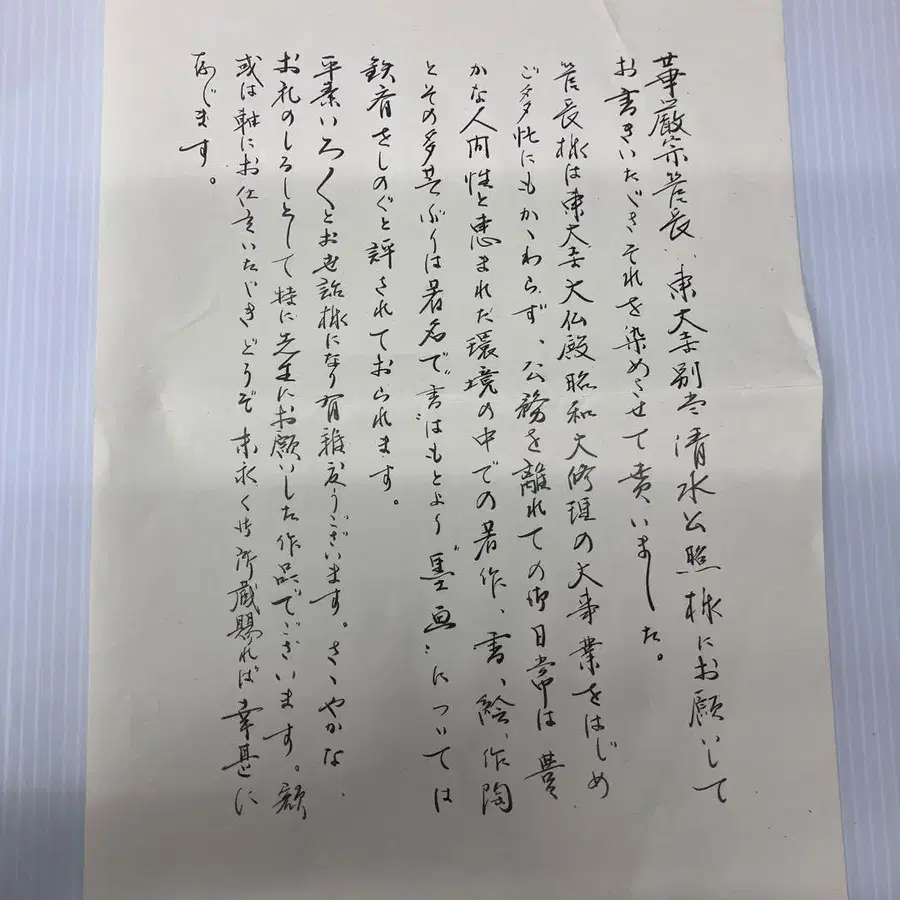 華厳宗管長、東大寺別当 清水公照様にお願いして
お書きいたゞきそれを染めさせて貰いました。
管長様は東大寺大仏殿昭和大修理の大事業をはじめ
ご多忙にもかゝわらず、公務を離れての御日常は豊
かな人間性と恵まれた環境の中での著作、書、絵、作陶
とその多芸ぶりは著名で“書”はもとより“墨画”については
鉄斉をしのぐと評されております。
平素いろ〱とお世話様になり有難うございます。さゝやかな
お礼のしるしとして特に先生にお願いした作品でございます。額
或は軸にお仕立いたゞきどうぞ末永く御所蔵賜れば幸甚に
存じます。